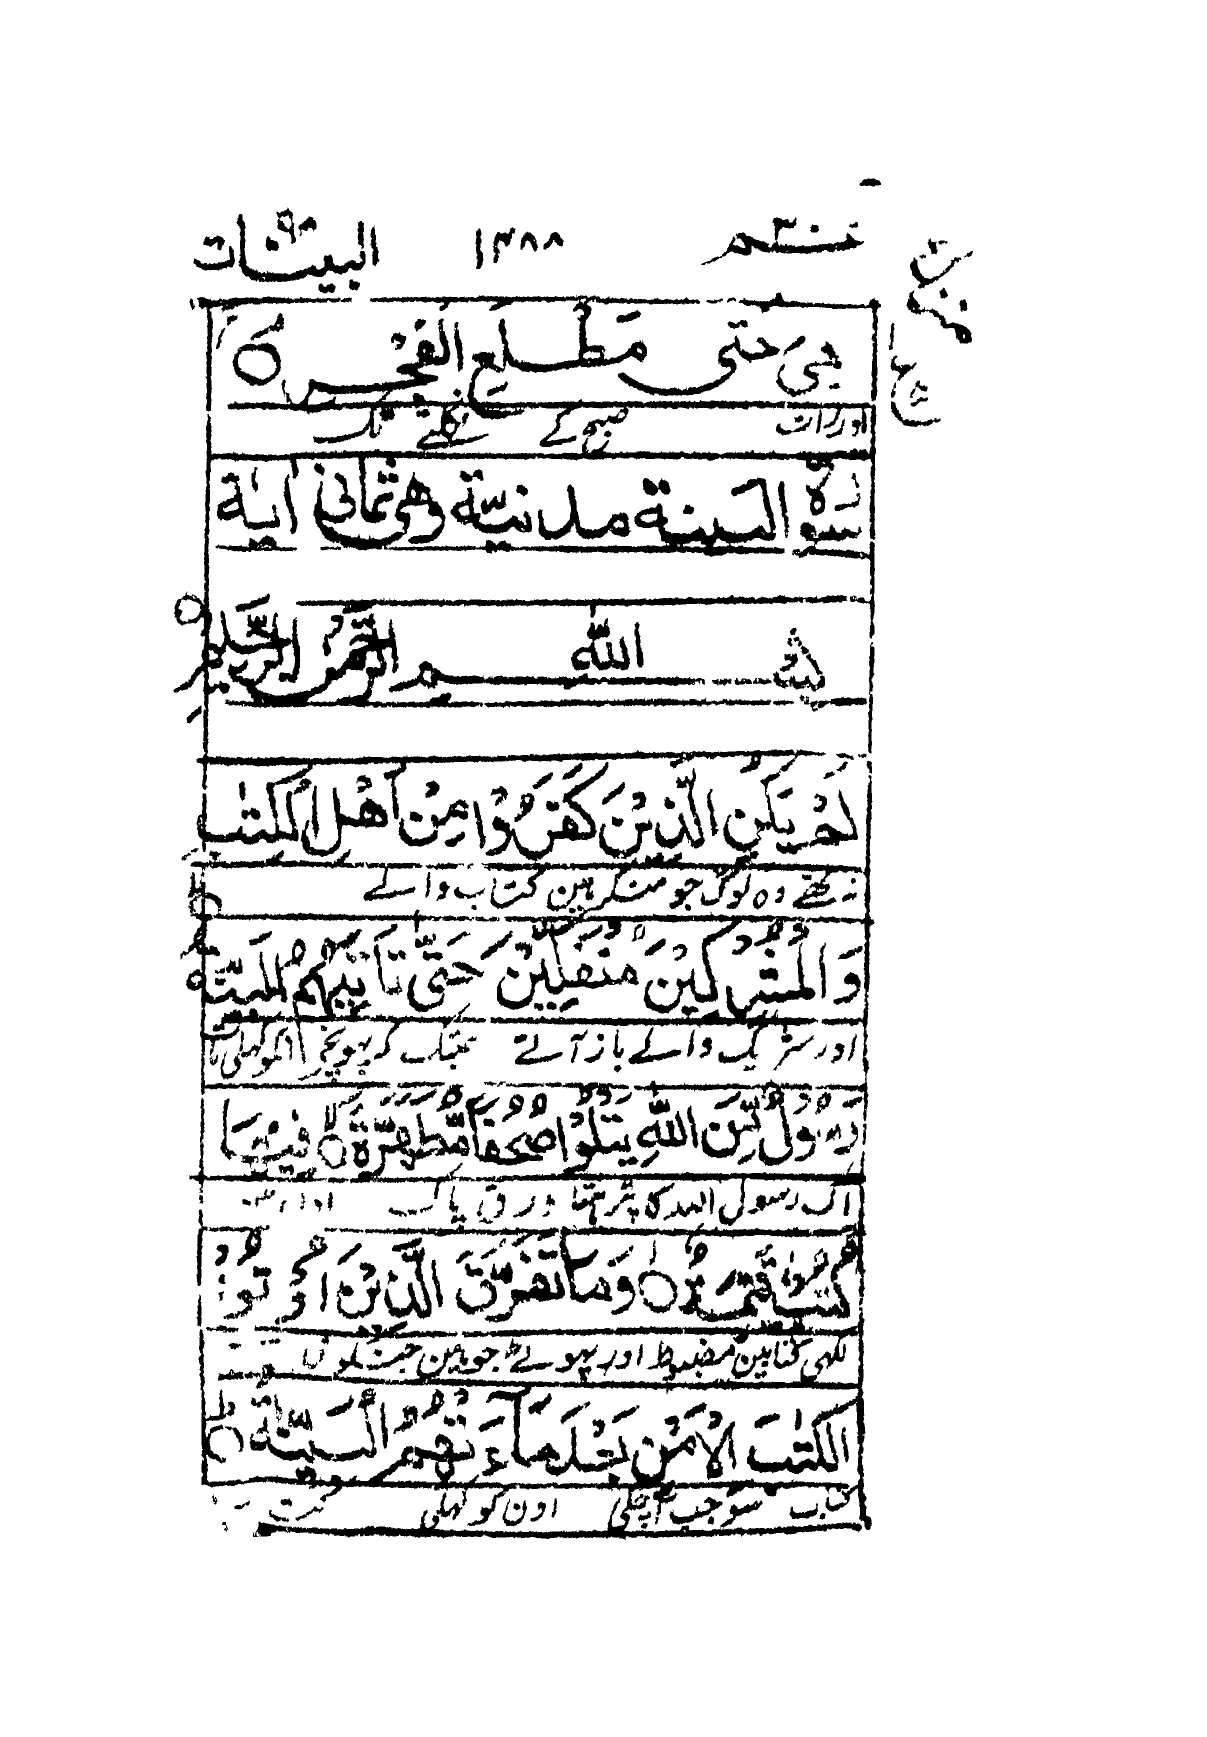 عم ٣٠ ١٣٨٨ البينات ٩٨
هِيَ حَتّٰى مَطْلَعِ الْفَجْرِ ○
اور رات صبح کے نکلنے تک
سورة البينة مدنية وهي ثماني اٰية
بسم الله الرحمن الرحيم ○
لَمْ يَكُنِ الَّذِيْنَ كَفَرُوْا مِنْ اَهْلِ الْكِتٰبِ
نہ تھے وہ لوگ جو منکر ہین کتاب والے
وَالْمُشْرِكِيْنَ مُنْفَكِّيْنَ حَتّٰى تَاْتِيَهُمُ الْبَيِّنَةُ
اور شرک والے باز آتے جبتک کہ پہونچے انکو کھلی بات
رَسُوْلٌ مِّنَ اللّٰهِ يَتْلُوْا صُحُفًا مُّطَهَّرَةً ○ فِيْهَا
ایک رسول اللہ کا پڑہتا ورق پاک
كُتُبٌ قَيِّمَةٌ ○ وَمَا تَفَرَّقَ الَّذِيْنَ اُوْتُوا
لکھی کتابین مضبوط اور پھوٹے جو ہین جنکو
الْكِتٰبَ اِلَّا مِنْۢ بَعْدِ مَا جَآءَتْهُمُ الْبَيِّنَةُ ○
کتاب سو جب آچکی اون کو کھلی